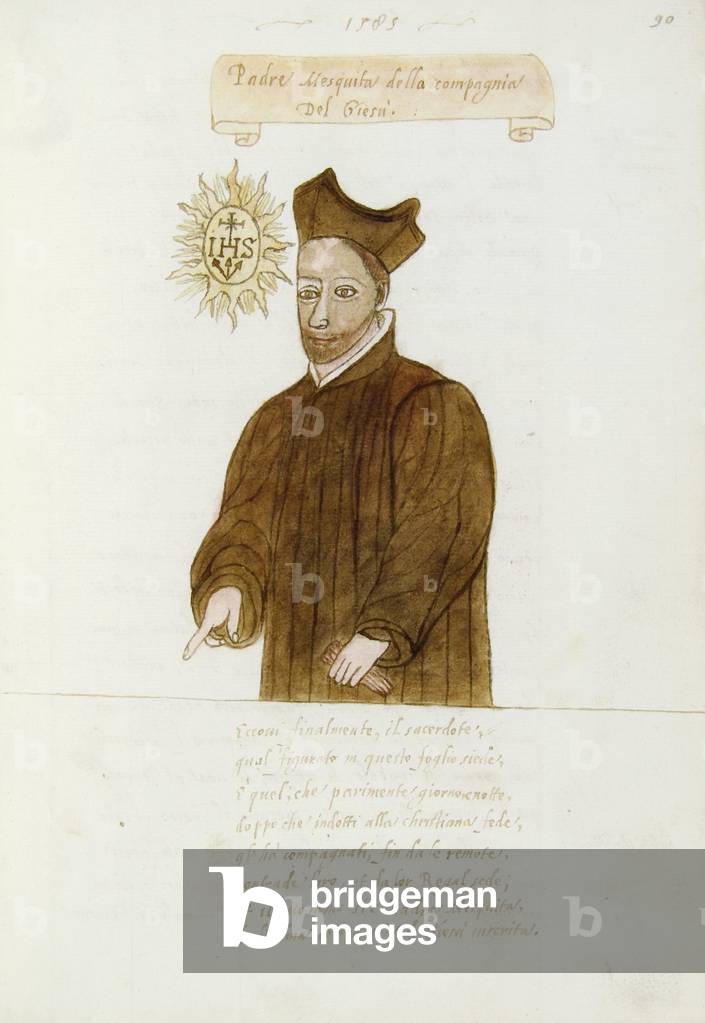 1585
90
Padre Mesquita della compagnia
Del Giesù.
IHS
Eccoui finalmente, il sacerdote,
qual figurato in questo foglio siede,
E quel, che parimente giorno e notte,
doppo che indotti alla christiana fede,
gl' ha compagnati, fin da le remote,
lor Regal sede;
Mesquita,
inserita.
bridgeman
images